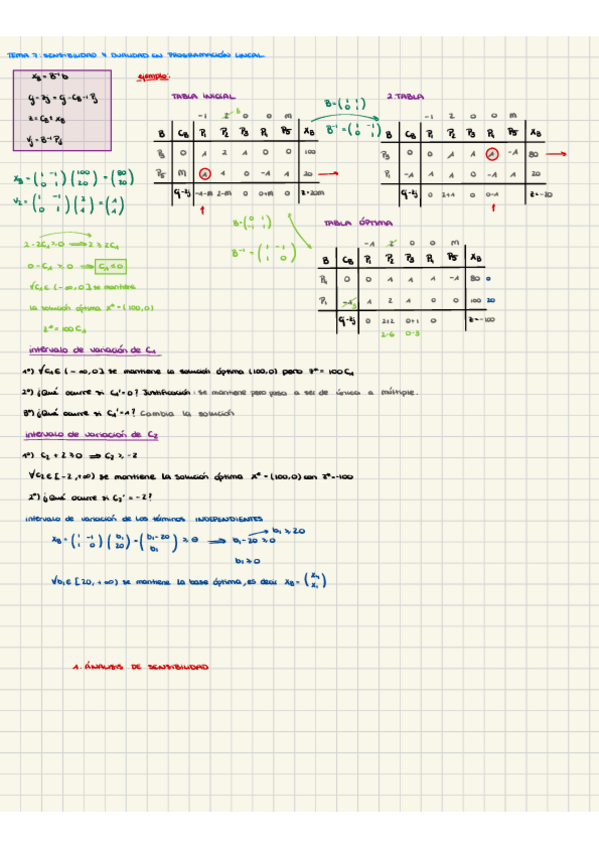 TEMA 7: SENSIBILIDAD Y DUALIDAD EN PROGRAMACIÓN LINEAL
XB = B⁻¹b
ejemplo:
TABLA INICIAL
2.TABLA
z = CB · XB
-1 2 0 0 M
B CB P1 P2 P3 P4 P5 XB
P3 0 1 2 1 0 0 100
P5 M 1 1 0 -1 1 20
Cj-Zj -1-M 2-M 0 0+M 0 Z=20M
-1 2 0 0 M
B CB P1 P2 P3 P4 P5 XB
P3 0 0 1 1 1 -1 80
P1 -1 1 1 0 -1 1 20
Cj-Zj 0 2+1 0 0-1 Z=-20
XB = (1 -1 / 0 1) (100 / 20) = (80 / 20)
TABLA ÓPTIMA
-1 2 0 0 M
B CB P1 P2 P3 P4 P5 XB
P4 0 0 1 1 1 -1 80 0
P1 -1 1 2 1 0 0 100 20
Cj-Zj 0 2+2 0+1 0 Z=-100
2-6 0-3
2-2C1 ≥ 0 ⟹ 2 ≥ 2C1
0-C1 ≥ 0 ⟹ C1 ≤ 0
∀C1 ∈ (-∞,0] se mantiene
la solución óptima x* = (100,0)
z* = 100C1
intervalo de variación de C1
1º) ∀C1 ∈ (-∞,0] se mantiene la solución óptima (100,0) pero z* = 100C1
2º) ¿Qué ocurre si C1' = 0? Justificación: se mantiene pero pasa a ser de única a múltiple.
3º) ¿Qué ocurre si C1' = 1? Cambia la solución
intervalo de variación de C2
1º) C2 + 2 ≥ 0 ⟹ C2 ≥ -2
∀C2 ∈ [-2,+∞) se mantiene la solución óptima x* = (100,0) con z* = -100
2º) ¿Qué ocurre si C2' = -2?
intervalo de variación de los términos INDEPENDIENTES
XB = (1 -1 / 1 0) (b1 / 20) = (b1-20 / b1) ≥ 0 ⟹ b1-20 ≥ 0 → b1 ≥ 20
b1 ≥ 0
∀b1 ∈ [20,+∞) se mantiene la base óptima, es decir XB = (x4 / x1)
1. ÁNALISIS DE SENSIBILIDAD